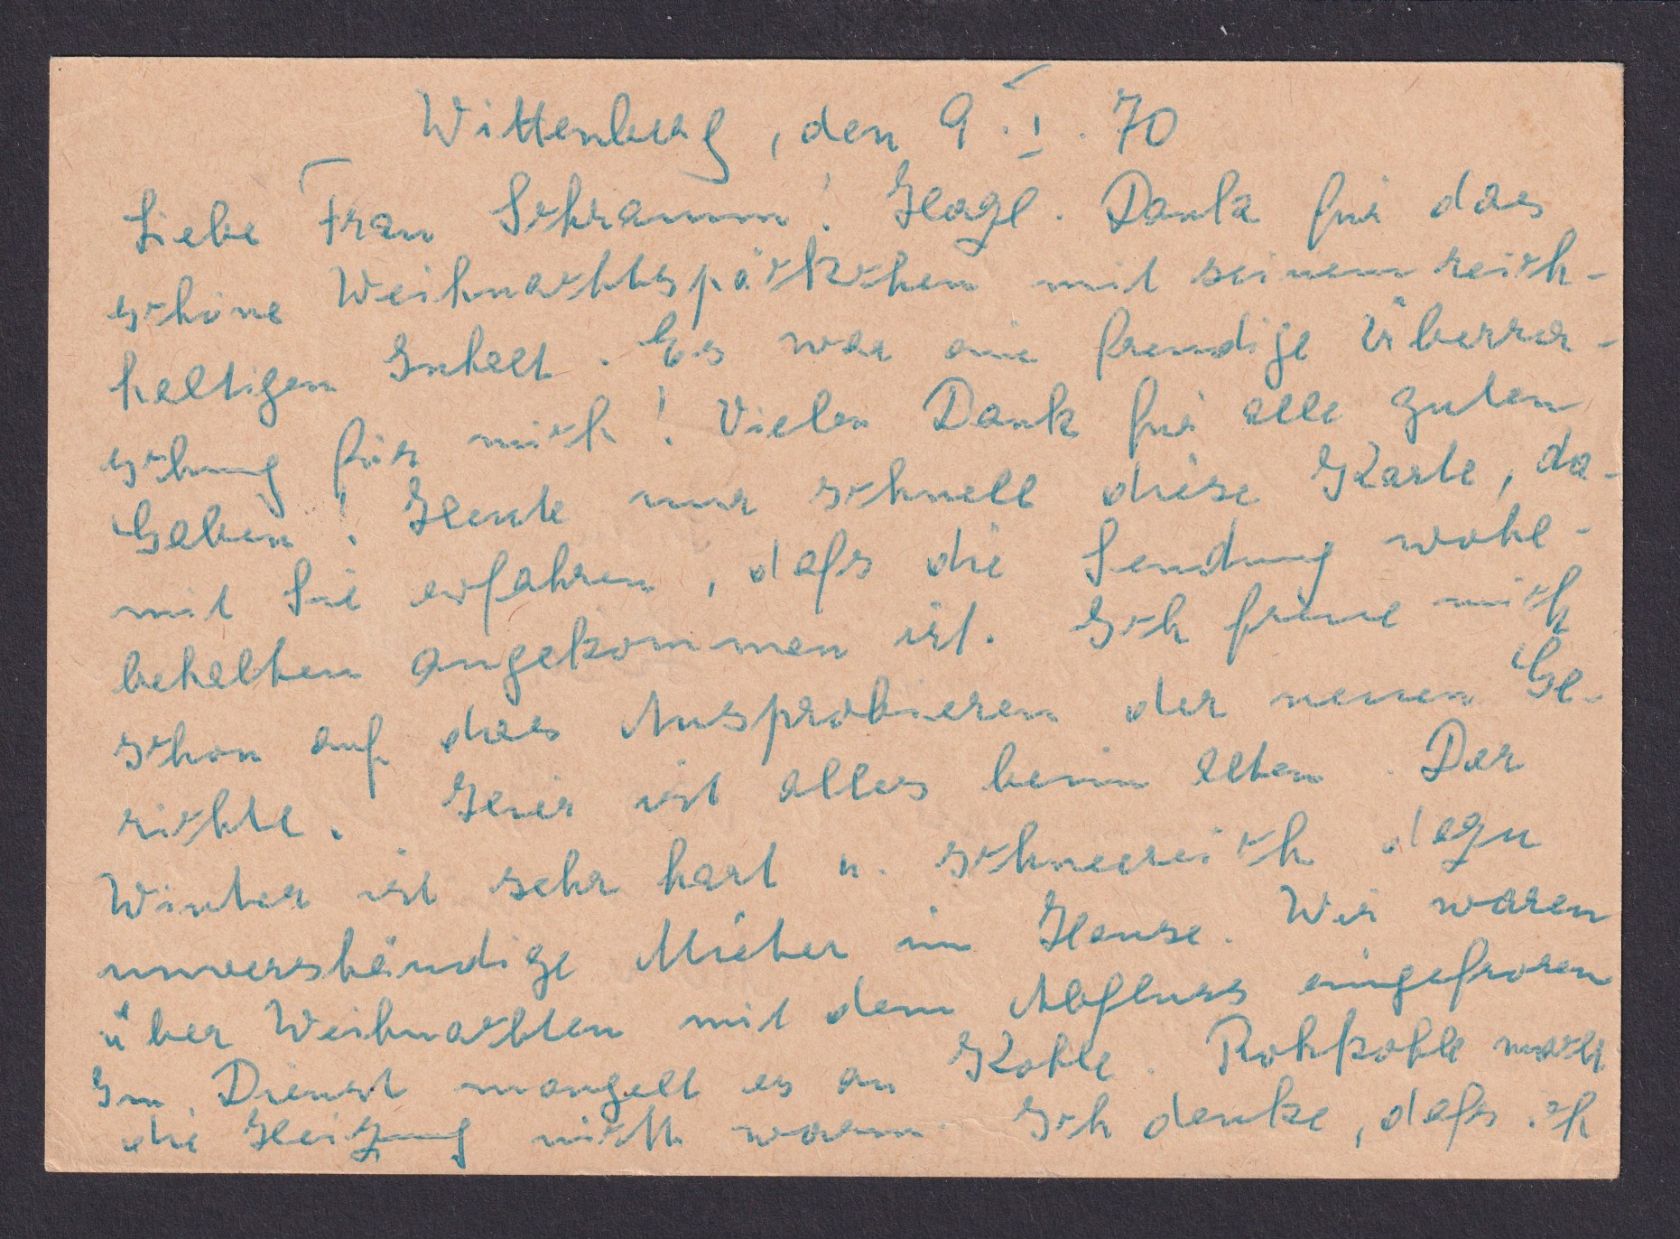 Wittenberg, den 9.I.70
Liebe Frau Schramm! Herzl. Dank für das
schöne Weihnachtspäckchen mit seinem reich-
haltigen Inhalt. Es war eine freudige Überra-
schung für mich! Vielen Dank für alle guten
Gaben! Heute nur schnell diese Karte, da-
mit Sie erfahren, daß die Sendung wohl-
behalten angekommen ist. Ich freue mich
schon auf das Ausprobieren der neuen Ge-
richte. Hier ist alles beim alten. Der
Winter ist sehr hart u. schneereich dazu
unverständige Mieter im Hause. Wir waren
über Weihnachten mit dem Abfluss eingefroren
Im Dienst mangelt es an Kohle. Rohkohle macht
die Heizung nicht warm. Ich denke, daß ich